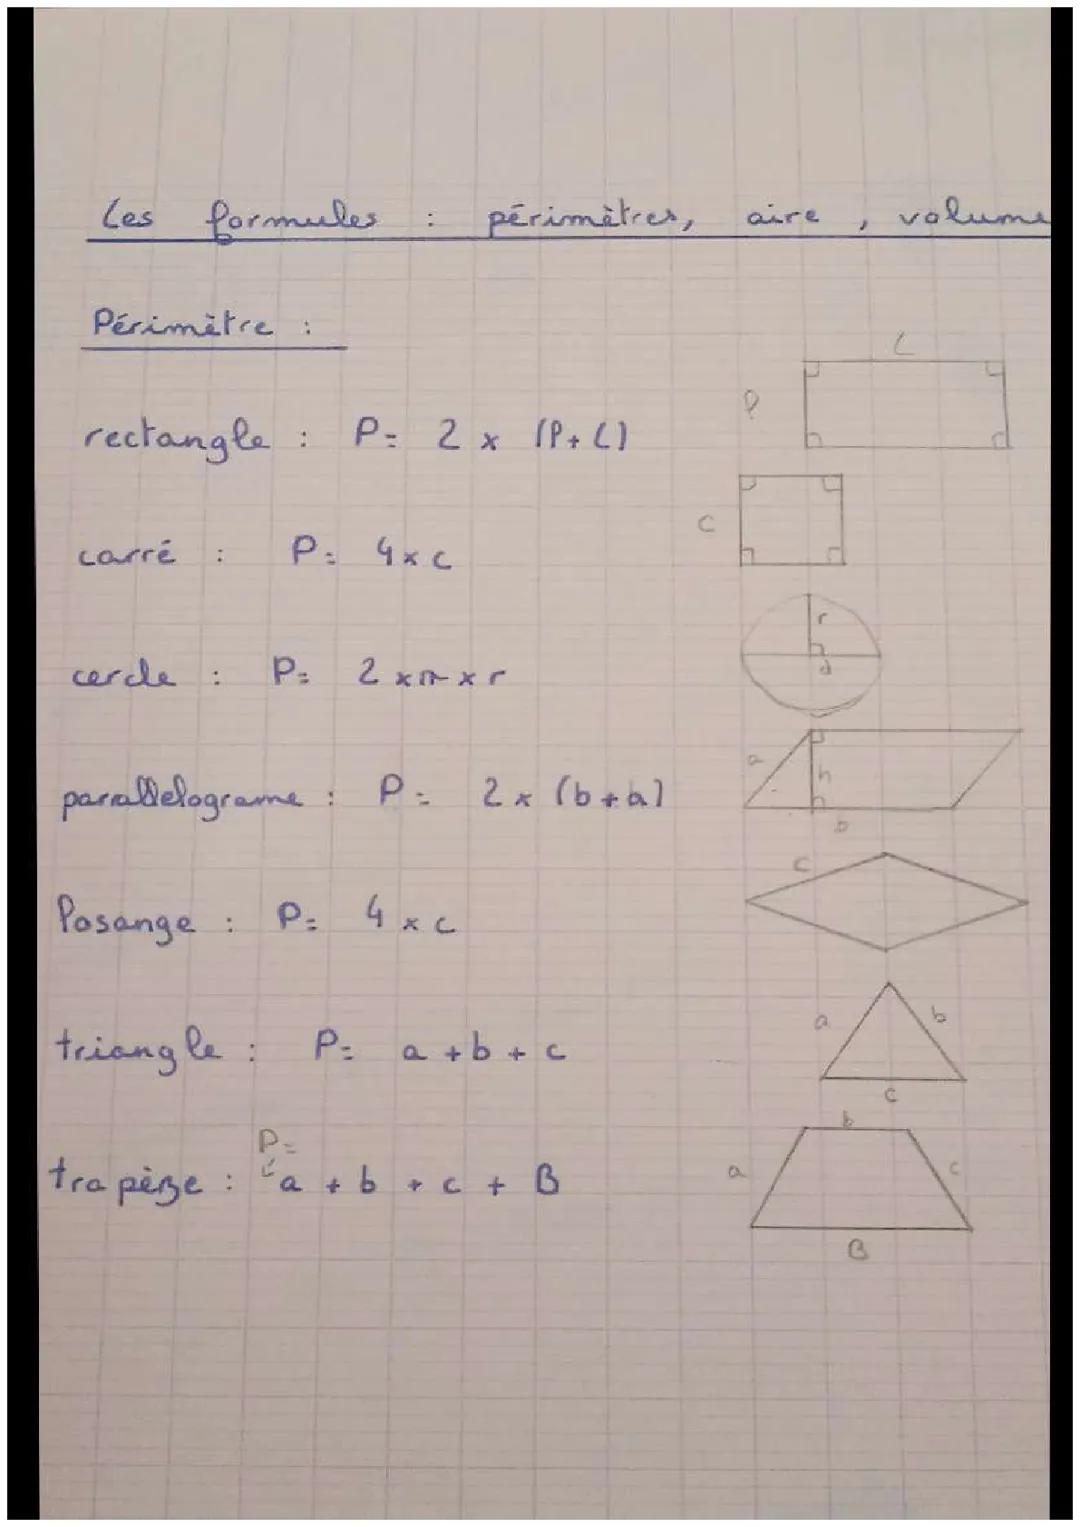 Les formules : périmètres, aire, volume
Périmètre :
L
l
rectangle : P= 2 x (l+L)
c
carré : P= 4 x c
r
d
cercle : P= 2 x π x r
a
h
b
parallelograme : P= 2 x (b+a)
c
losange : P= 4 x c
a
b
c
triangle : P= a + b + c
b
a
c
B
P=
trapèze : a + b + c + B